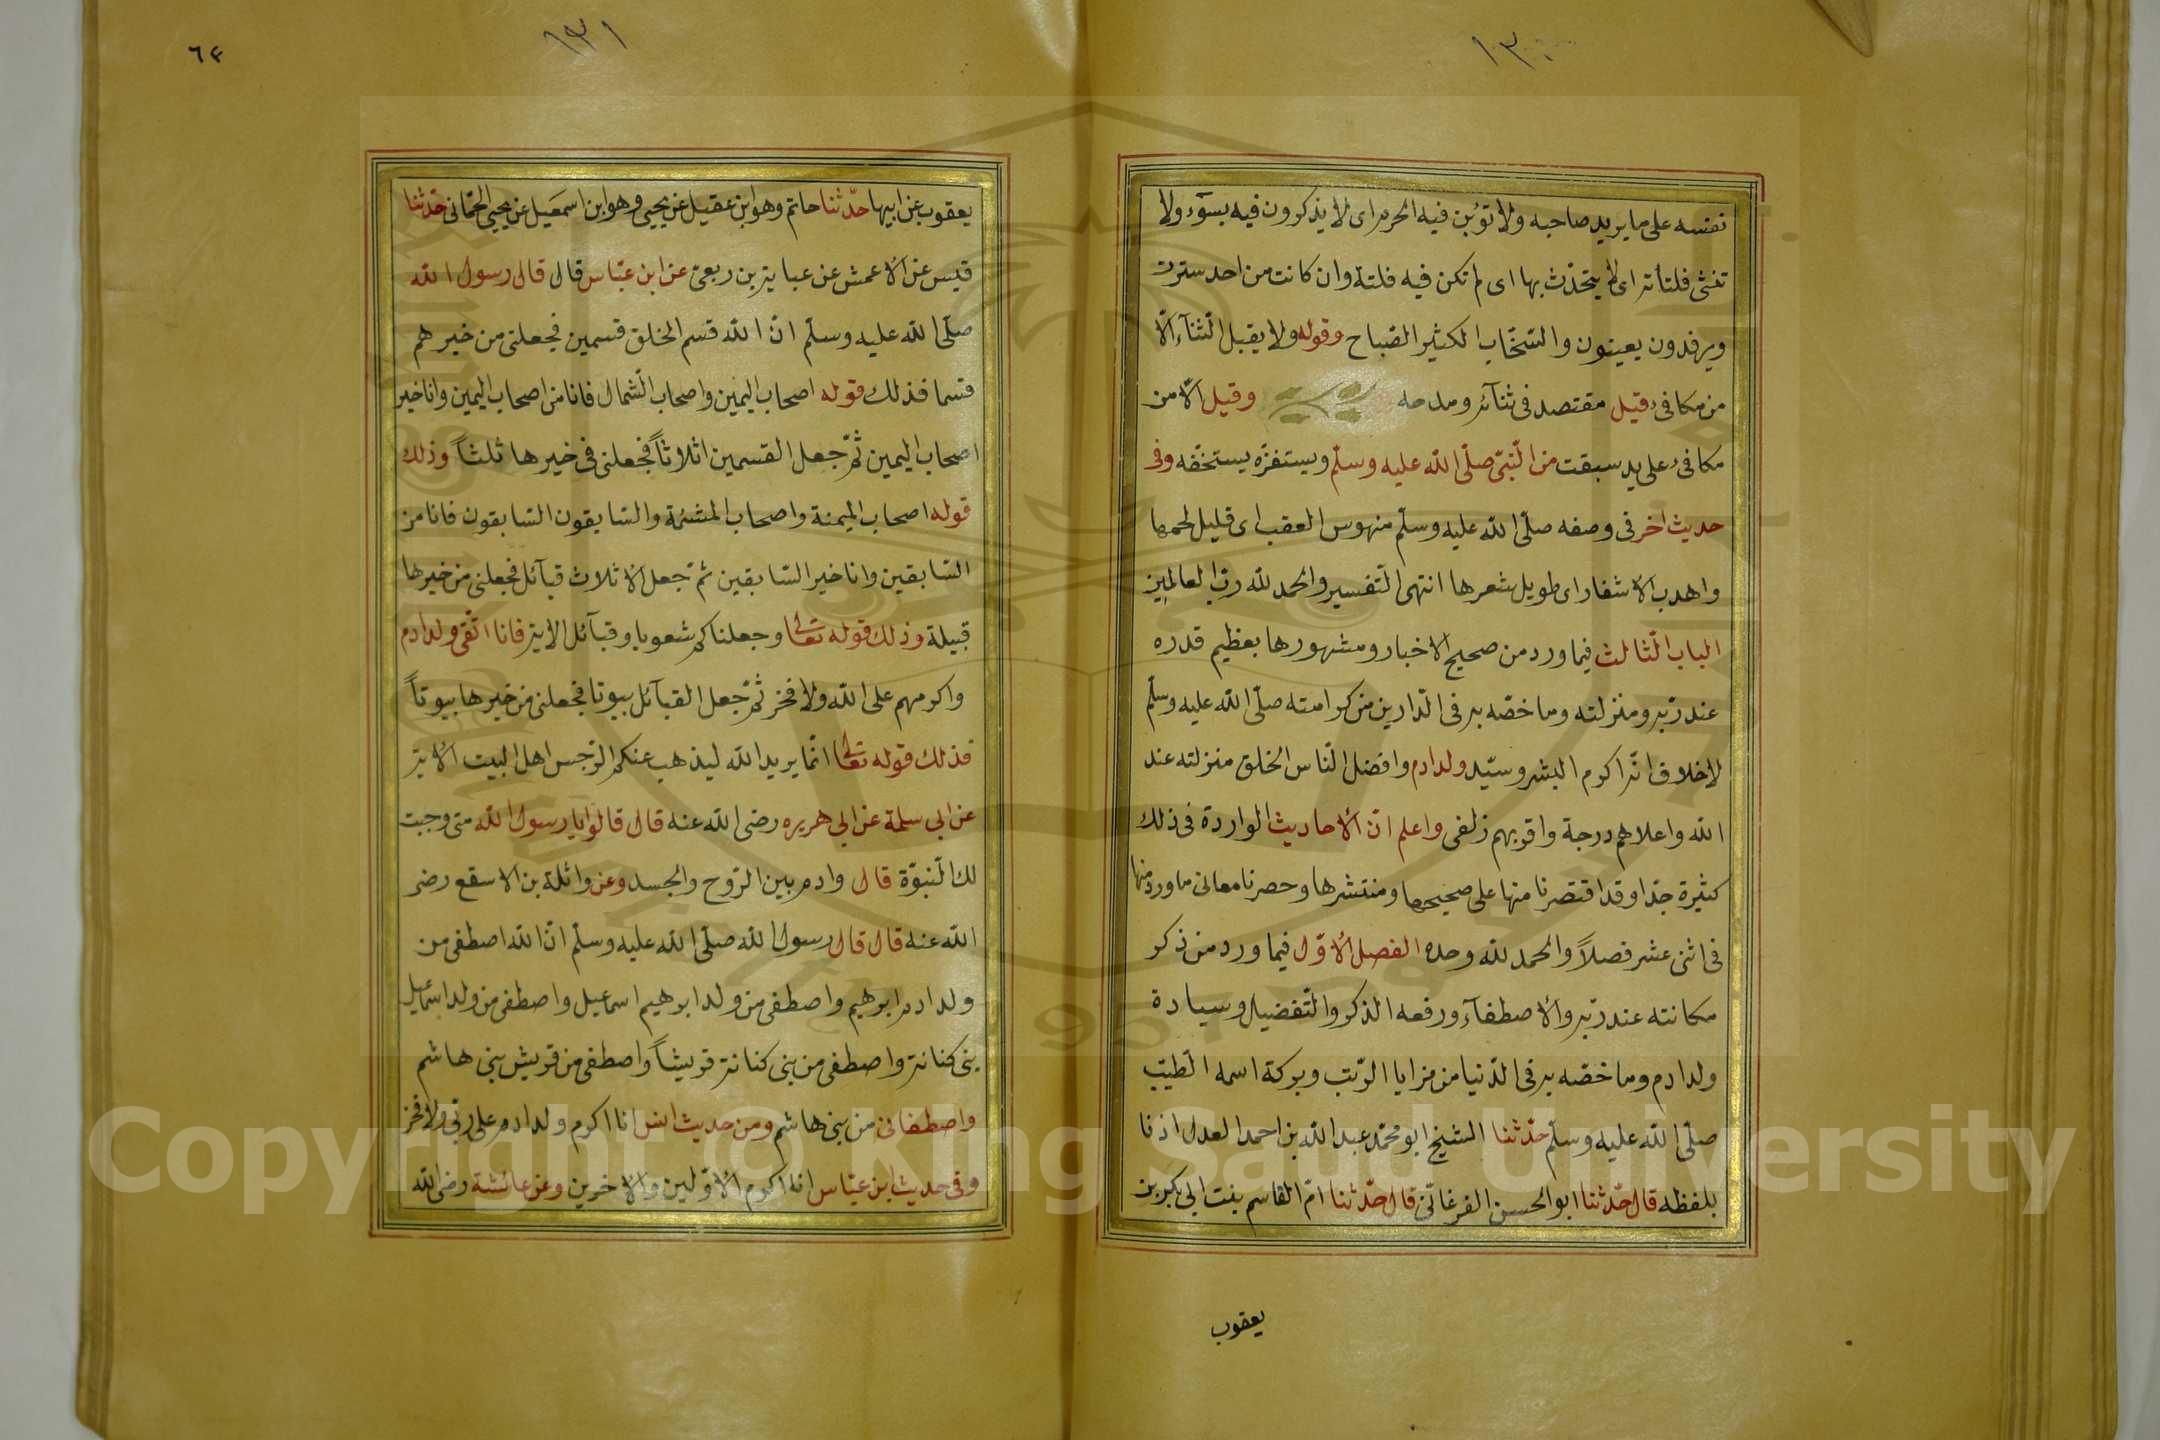 ١٣٠
نفسه على ما يريد صاحبه ولا تؤبن فيه الحرم اى لا يذكرون فيه بسوء ولا
تنثى فلتأته اى لم يتحدّث بها اى لم تكن فيه فلتة وان كانت من احد سترت
ويرفدون يعينون والسّخّاب الكثير الصّياح وقوله ولا يقبل الثّناء الّا
من مكافئ قيل مقتصد فى ثنآئه ومدحه وقيل الّا من
مكافئ على يد سبقت من النّبىّ صلّى الله عليه وسلّم ويستفزّه يستخفّه وفى
حديث اخر فى وصفه صلّى الله عليه وسلّم منهوس العقب اى قليل لحمها
واهدب الاشفار اى طويل شعرها انتهى التّفسير والحمد لله ربّ العالمين
الباب الثّالث فيما ورد من صحيح الاخبار ومشهورها بعظيم قدره
عند ربّه ومنزلته وما خصّه به فى الدّارين من كرامته صلّى الله عليه وسلّم
لاخلاف انّه اكرم البشر وسيّد ولد ادم وافضل النّاس الخلق منزلته عند
الله واعلاهم درجة واقربهم زلفى واعلم انّ الاحاديث الواردة فى ذلك
كثيرة جدّا وقد اقتصرنا منها على صحيحها ومنتشرها وحصرنا معانى ما ورد منها
فى اثنى عشر فصلاً والحمد لله وحده الفصل الاوّل فيما ورد من ذكر
مكانته عند ربّه والاصطفآء ورفعه الذكر والتّفضيل وسيادة
ولد ادم وما خصّه به فى الدّنيا من مزايا الرّتب وبركة اسمه الطّيّب
صلّى الله عليه وسلّم حدّثنا الشيخ ابو محمّد عبد الله بن احمد العدل اذنا
بلفظه قال حدّثنا ابو الحسن الفرغانّى قال حدّثنا امّ القاسم بنت ابى بكر بن
يعقوب
١٣١
٦٤
يعقوب عن ابيها حدّثنا حاتم وهو ابن عقيل عن يحيى وهو ابن اسمعيل عن يحيى الحمّانى حدّثنا
قيس عن الاعمش عن عباية بن ربعى عن ابن عبّاس قال قال رسول الله
صلّى الله عليه وسلّم انّ الله قسم الخلق قسمين فجعلنى من خيرهم
قسما فذلك قوله اصحاب اليمين واصحاب الشّمال فانا من اصحاب اليمين وانا خير
اصحاب اليمين ثمّ جعل القسمين اثلاثاً فجعلنى فى خيرها ثلثاً وذلك
قوله اصحاب الميمنة واصحاب المشئمة والسّابقون السّابقون فانا من
السّابقين وانا خير السّابقين ثمّ جعل الاثلاث قبآئل فجعلنى من خيرها
قبيلة وذلك قوله تعالى وجعلناكم شعوبا وقبآئل الاية فانا اتقى ولد ادم
واكرمهم على الله ولا فخر ثمّ جعل القبآئل بيوتا فجعلنى من خيرها بيوتاً
فذلك قوله تعالى انّما يريد الله ليذهب عنكم الرّجس اهل البيت الاية
عن ابى سلمة عن ابى هريره رضى الله عنه قال قالوا يا رسول الله متى وجبت
لك النّبوّة قال وادم بين الرّوح والجسد وعن واثلة بن الاسقع رضى
الله عنه قال قال رسول الله صلّى الله عليه وسلّم انّ الله اصطفى من
ولد ادم ابرهيم واصطفى من ولد ابرهيم اسماعيل واصطفى من ولد اسماعيل
بنى كنانة واصطفى من بنى كنانة قريشاً واصطفى من قريش بنى هاشم
واصطفانى من بنى هاشم ومن حديث انس انا اكرم ولد ادم على ربّى ولا فخر
وفى حديث ابن عبّاس انا اكرم الاوّلين والاخرين وعن عائشة رضى الله
Copyright © King Saud University